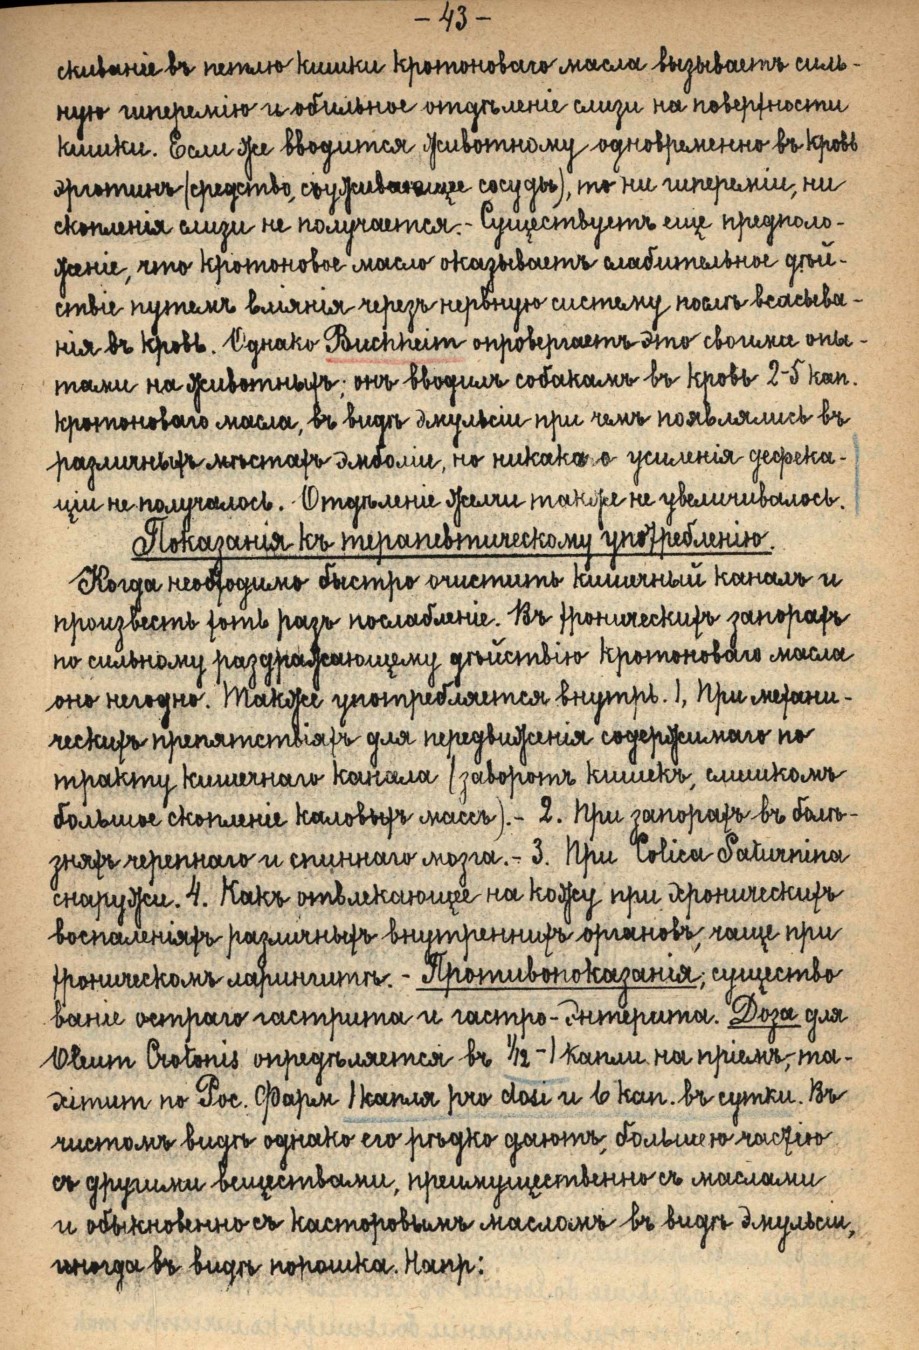 – 43 –
скиваніе въ петлю кишки кротоноваго масла вызываетъ силь-
ную гиперемію и обильное отдѣленіе слизи на поверхности
кишки. Если же вводится животному одновременно въ кровь
эрготинъ (средство, съуживающее сосуды), то ни гипереміи, ни
скопленія слизи не получается.- Существуетъ еще предполо-
женіе, что кротоновое масло оказываетъ слабительное дѣй-
ствіе путемъ вліянія черезъ нервную систему послѣ всасыва-
нія въ кровь. Однако Buchheim опровергаетъ это своими опы-
тами на животныхъ; онъ вводилъ собакамъ въ кровь 2-5 кап.
кротоноваго масла, въ видѣ эмульсіи при чемъ появлялись въ
различныхъ мѣстахъ эмболіи, но никакаго усиленія дефека-
ціи не получалось. Отдѣленіе желчи также не увеличивалось.
Показанія къ терапевтическому употребленію.
Когда необходимо быстро очистить кишечный каналъ и
произвесть хоть разъ послабленіе. Въ хроническихъ запорахъ
по сильному раздражающему дѣйствію кротоноваго масла
оно негодно. Также употребляется внутрь. 1, При механи-
ческихъ препятствіяхъ для передвиженія содержимаго по
тракту кишечнаго канала (заворотъ кишекъ, слишкомъ
большое скопленіе каловыхъ массъ).- 2. При запорахъ въ болѣ-
зняхъ черепнаго и спиннаго мозга.- 3. При Colica Saturnina
снаружи. 4. Какъ отвлекающее на кожу при хроническихъ
воспаленіяхъ различныхъ внутреннихъ органовъ, чаще при
хроническомъ ларингитѣ. - Противопоказанія; существо
ваніе остраго гастрита и гастро-энтерита. Доза для
Oleum Crotonis опредѣляется въ 1/12 - 1 капли на пріемъ, та-
хітит по Рос. Фарм 1 капля pro dosi и 6 кап. въ сутки. Въ
чистомъ видѣ однако его рѣдко даютъ, большею частію
съ другими веществами, преимущественно съ маслами
и обыкновенно съ касторовымъ масломъ въ видѣ эмульсіи,
иногда въ видѣ порошка. Напр: